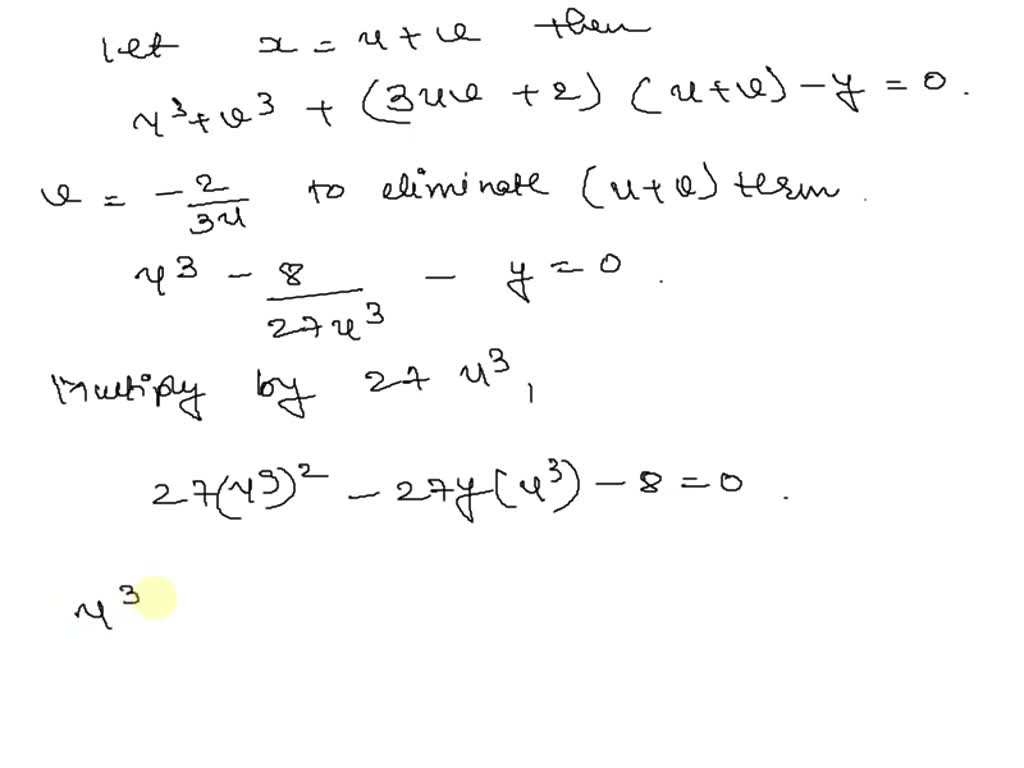 let x = u + v then
u³ + v³ + (3uv + 2) (u + v) - y = 0.
v = -2/3u to eliminate (u + v) term.
u³ - 8/27u³ - y = 0.
Multiply by 27 u³,
27(u³)² - 27y(u³) - 8 = 0.
u³